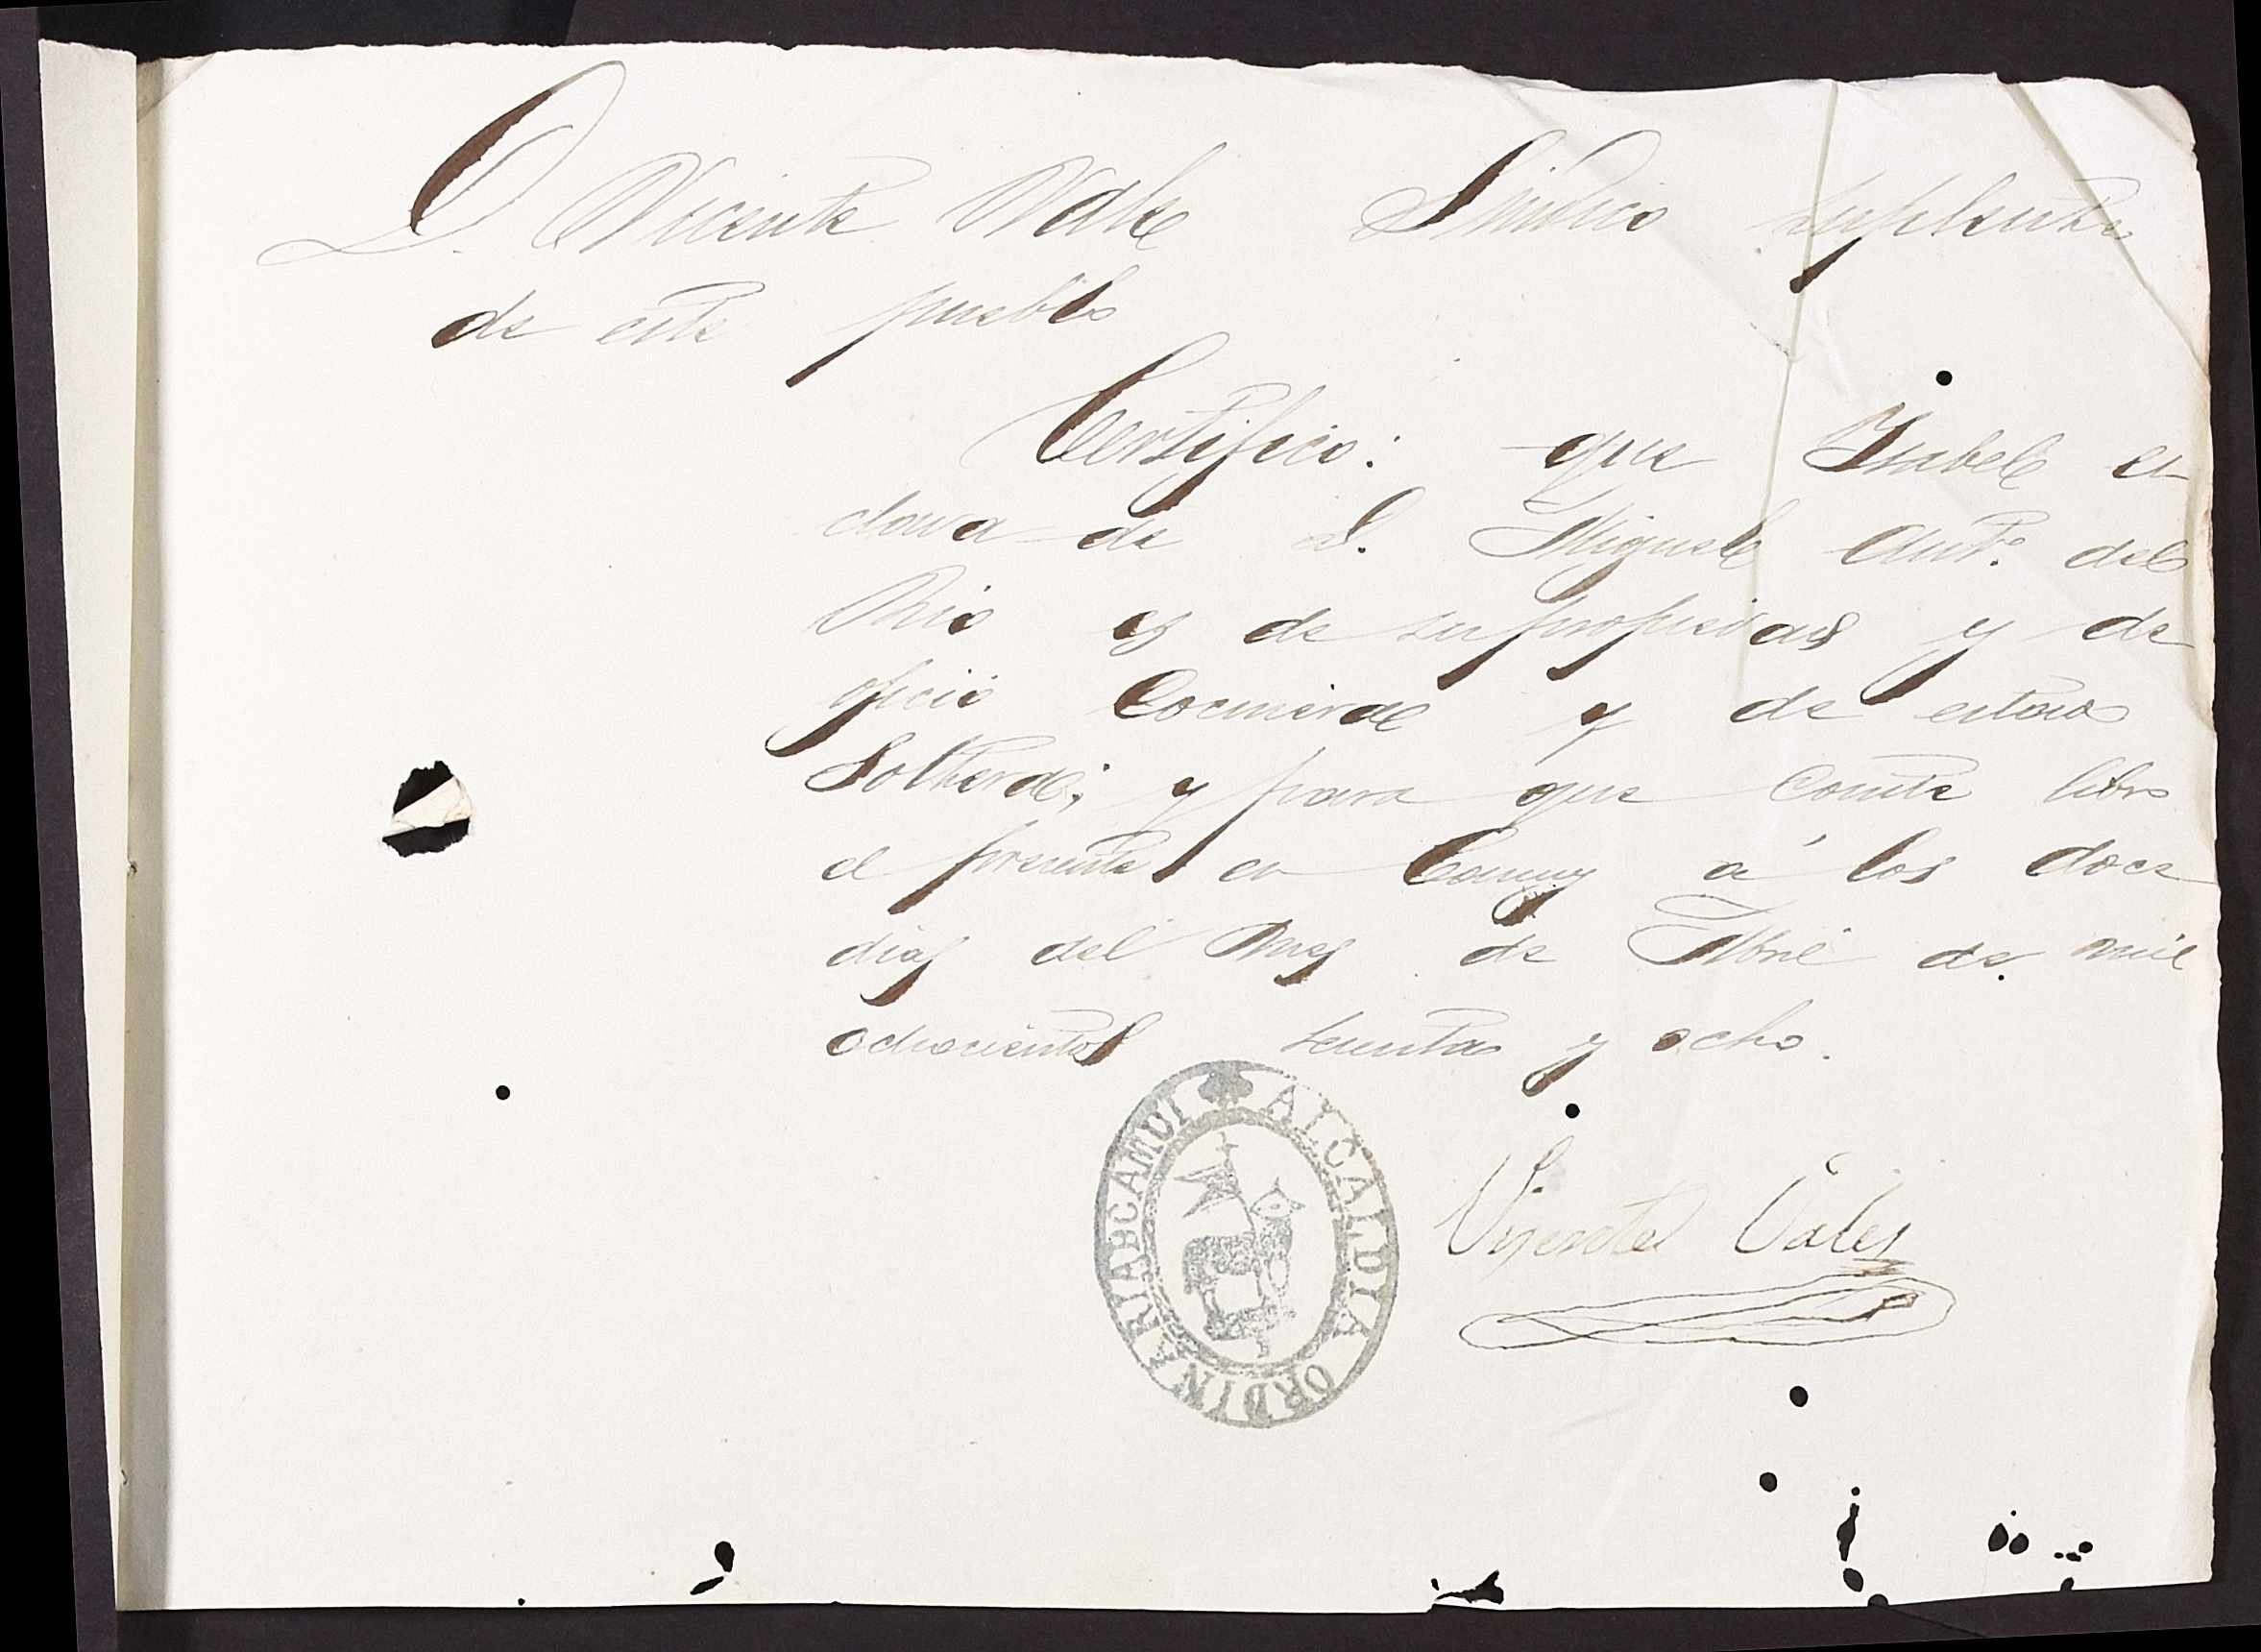 D. Vicente Vale Sindico suplente
de este pueblo
Certifico: que Ysabel es-
clava de D. Miguel Antº. del
Rio es de su propiedad y de
oficio Cocinera y de estado
Soltera; y para que conste libro
el presente en Camuy a los doce
dias del mes de Abril de mil
ochocientos sesenta y ocho.
ALCALDIA ORDINARIA DE CAMUI
Visente Vales